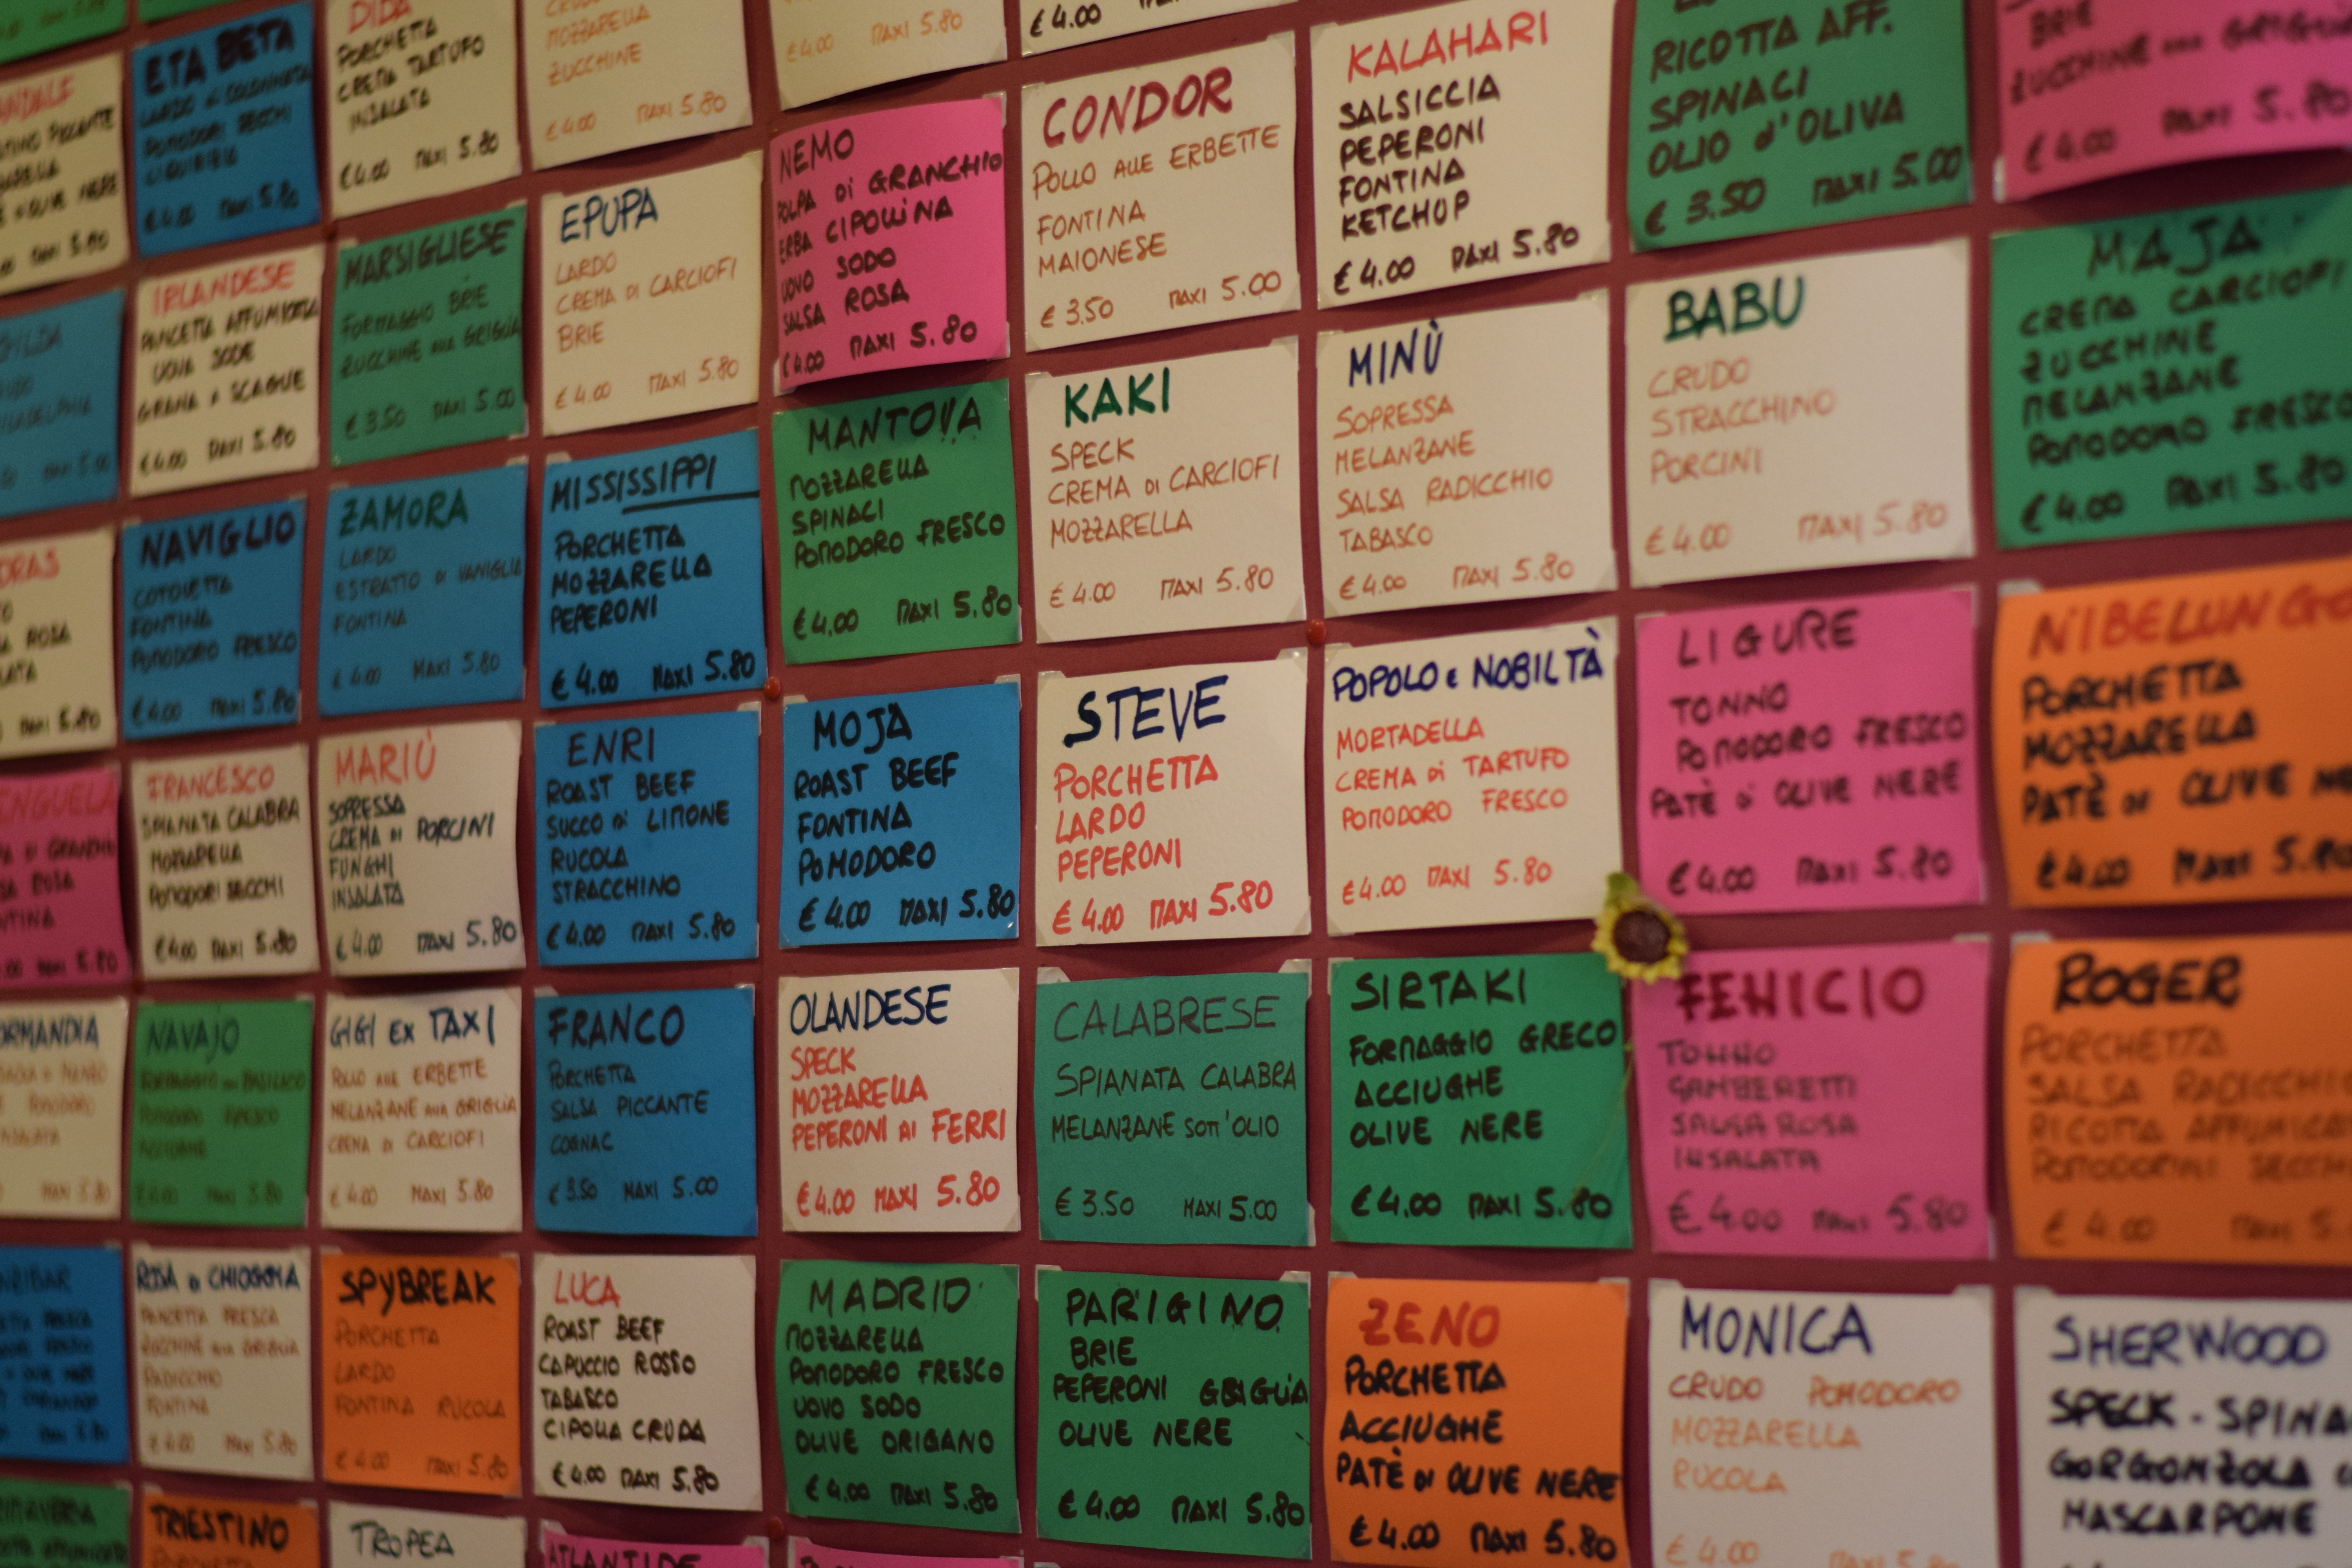 ETA BETA
LARDO di COLONNATA
POMODORI SECCHI
€4.00 MAXI 5.80
DIDA
PORCHETTA
CREMA TARTUFO
INSALATA
€4.00 MAXI 5.80
MOZZARELLA
ZUCCHINE
€4.00 MAXI 5.80
€4.00 MAXI 5.80
€4.00
NEMO
POLPA di GRANCHIO
ERBA CIPOLLINA
UOVO SODO
SALSA ROSA
€4.00 MAXI 5.80
CONDOR
POLLO ALLE ERBETTE
FONTINA
MAIONESE
€3.50 MAXI 5.00
KALAHARI
SALSICCIA
PEPERONI
FONTINA
KETCHUP
€4.00 MAXI 5.80
RICOTTA AFF.
SPINACI
OLIO d'OLIVA
€3.50 MAXI 5.00
BRIE
ZUCCHINE ALLA GRIGLIA
€4.00 MAXI 5.80
IRLANDESE
PANCETTA AFFUMICATA
UOVA SODE
GRANA A SCAGLIE
€4.00 MAXI 5.80
MARSIGLIESE
FORMAGGIO BRIE
ZUCCHINE ALLA GRIGLIA
€3.50 MAXI 5.00
EPUPA
LARDO
CREMA DI CARCIOFI
BRIE
€4.00 MAXI 5.80
MANTOVA
MOZZARELLA
SPINACI
POMODORO FRESCO
€4.00 MAXI 5.80
KAKI
SPECK
CREMA DI CARCIOFI
MOZZARELLA
€4.00 MAXI 5.80
MINÙ
SOPRESSA
MELANZANE
SALSA RADICCHIO
TABASCO
€4.00 MAXI 5.80
BABU
CRUDO
STRACCHINO
PORCINI
€4.00 MAXI 5.80
MAJA
CREMA CARCIOFI
ZUCCHINE
MELANZANE
POMODORO FRESCO
€4.00 MAXI 5.80
NAVIGLIO
COTOLETTA
FONTINA
POMODORO FRESCO
€4.00 MAXI 5.80
ZAMORA
LARDO
ESTRATTO DI VANIGLIA
FONTINA
€4.00 MAXI 5.80
MISSISSIPPI
PORCHETTA
MOZZARELLA
PEPERONI
€4.00 MAXI 5.80
MOJA
ROAST BEEF
FONTINA
POMODORO
€4.00 MAXI 5.80
STEVE
PORCHETTA
LARDO
PEPERONI
€4.00 MAXI 5.80
POPOLO e NOBILTÀ
MORTADELLA
CREMA di TARTUFO
POMODORO FRESCO
€4.00 MAXI 5.80
LIGURE
TONNO
POMODORO FRESCO
PATÈ di OLIVE NERE
€4.00 MAXI 5.80
NIBELUNGO
PORCHETTA
MOZZARELLA
PATÈ DI OLIVE
€4.00 MAXI 5.80
FRANCESCO
SPIANATA CALABRA
MOZZARELLA
POMODORI SECCHI
€4.00 MAXI 5.80
MARIÙ
SOPRESSA
CREMA DI PORCINI
FUNGHI
INSALATA
€4.00 MAXI 5.80
ENRI
ROAST BEEF
SUCCO di LIMONE
RUCOLA
STRACCHINO
€4.00 MAXI 5.80
OLANDESE
SPECK
MOZZARELLA
PEPERONI AI FERRI
€4.00 MAXI 5.80
CALABRESE
SPIANATA CALABRA
MELANZANE SOTT'OLIO
€3.50 MAXI 5.00
SIRTAKI
FORMAGGIO GRECO
ACCIUGHE
OLIVE NERE
€4.00 MAXI 5.80
FENICIO
TONNO
GAMBERETTI
SALSA ROSA
INSALATA
€4.00 MAXI 5.80
ROGER
PORCHETTA
SALSA RADICCHIO
RICOTTA
POMODORINI SECCHI
€4.00 MAXI
NAVAJO
POMODORO FRESCO
ACCIUGHE
€4.00 MAXI 5.80
GIGI EX TAXI
POLLO ALLE ERBETTE
MELANZANE ALLA GRIGLIA
CREMA DI CARCIOFI
€4.00 MAXI 5.80
FRANCO
PORCHETTA
SALSA PICCANTE
COGNAC
€3.50 MAXI 5.00
MADRID
MOZZARELLA
POMODORO FRESCO
UOVO SODO
OLIVE ORIGANO
€4.00 MAXI 5.80
PARIGINO
BRIE
PEPERONI GRIGLIA
OLIVE NERE
€4.00 MAXI 5.80
ZENO
PORCHETTA
ACCIUGHE
PATÈ DI OLIVE NERE
€4.00 MAXI 5.80
MONICA
CRUDO POMODORO
MOZZARELLA
RUCOLA
€4.00 MAXI 5.80
SHERWOOD
SPECK - SPINA
GORGONZOLA
MASCARPONE
PANCETTA FRESCA
ZUCCHINE ALLA GRIGLIA
RADICCHIO
FONTINA
€4.00 MAXI 5.80
SPYBREAK
PORCHETTA
LARDO
FONTINA RUCOLA
€4.00 MAXI 5.80
LUCA
ROAST BEEF
CAPUCCIO ROSSO
TABASCO
CIPOLLA CRUDA
€4.00 MAXI 5.80
TRIESTINO
PORCHETTA
TROPEA
ATLANTIDE